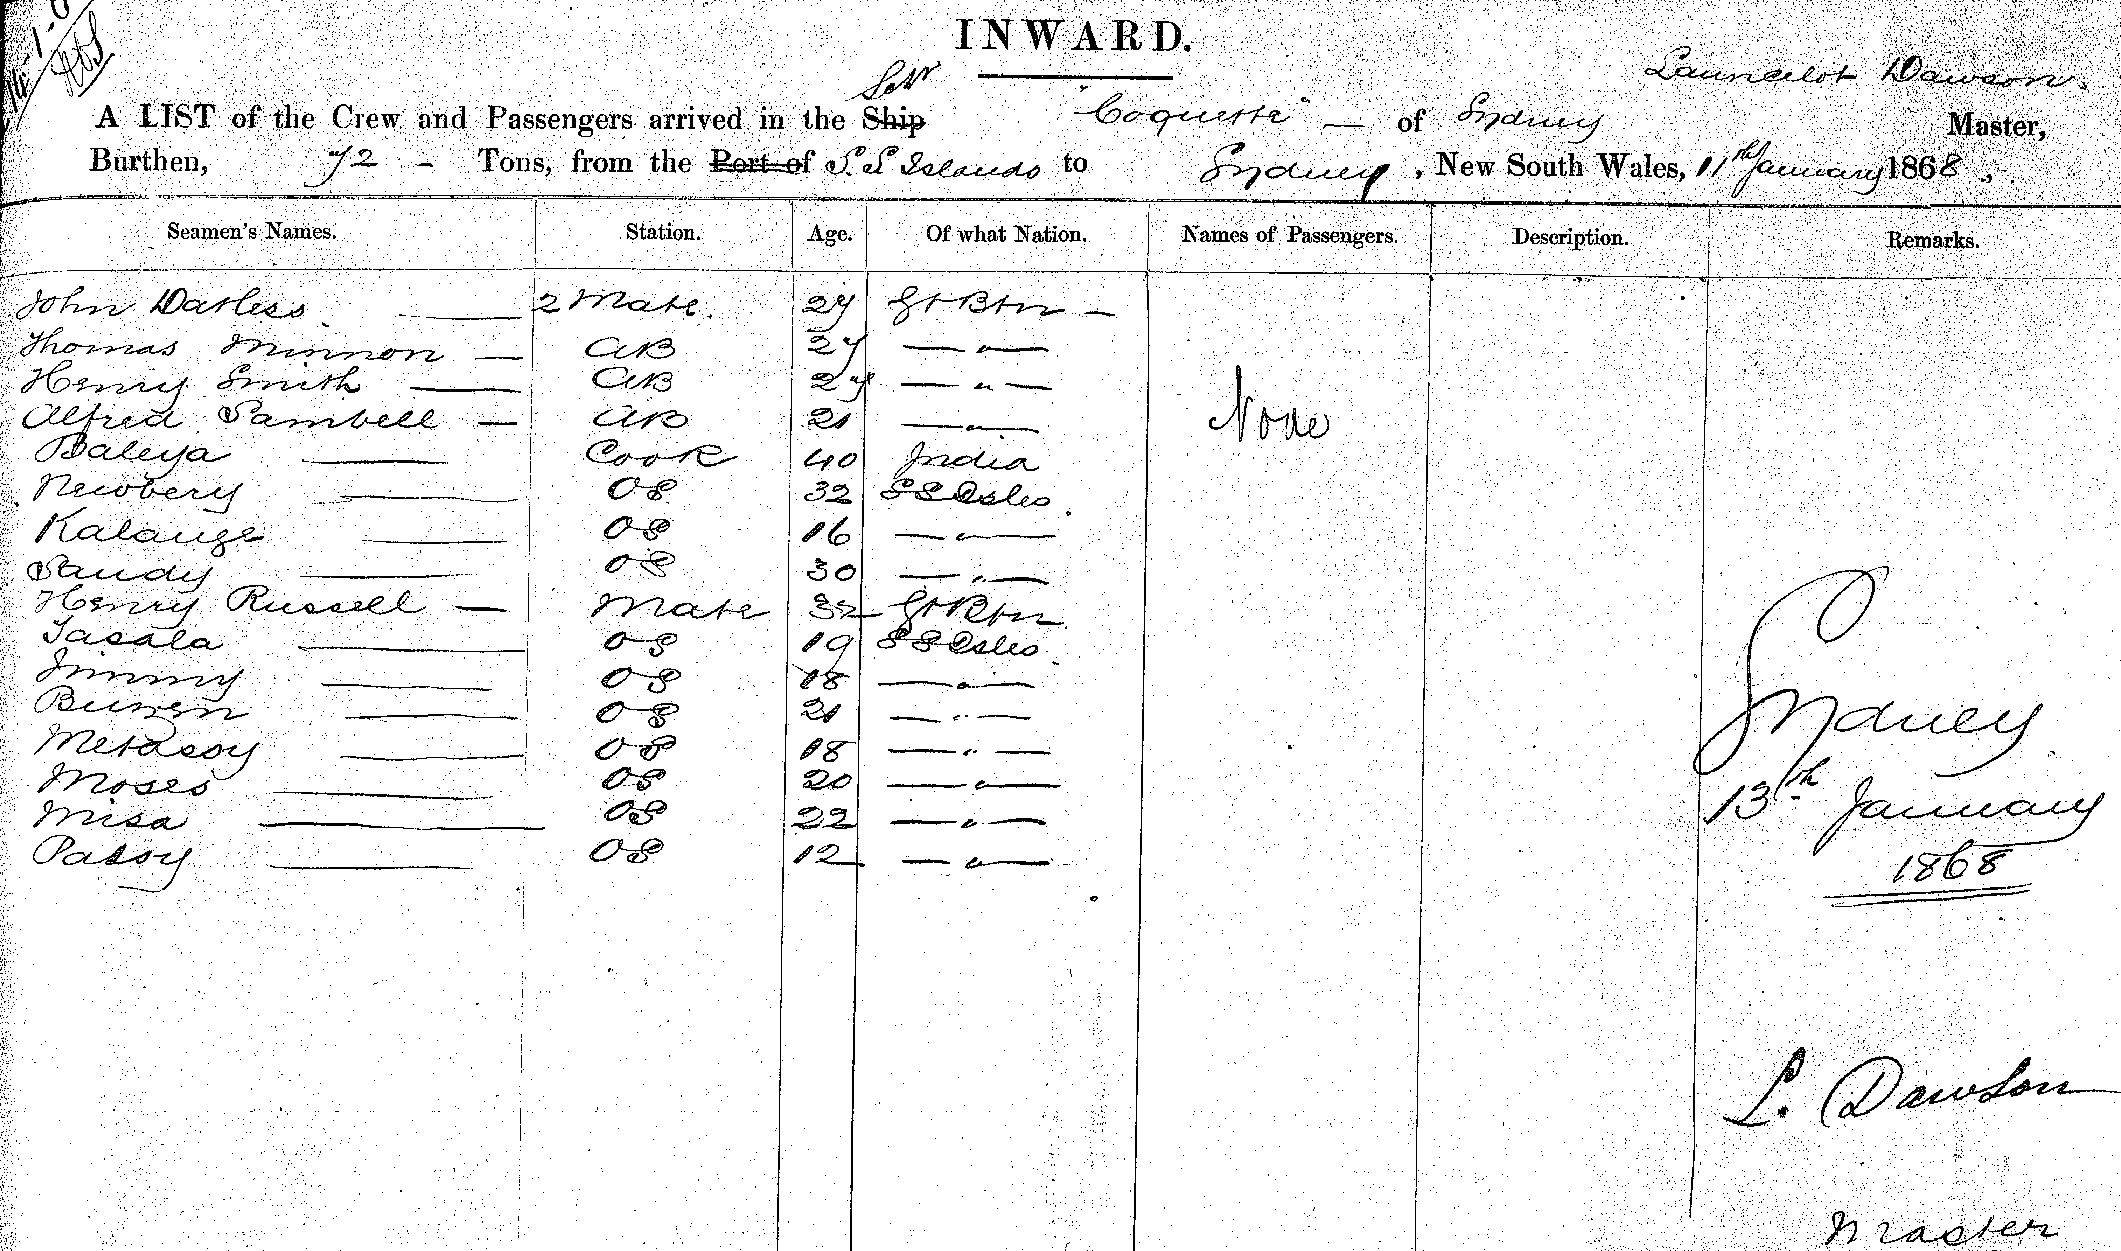 INWARD.
Launcelot Dawson.
Schr
A LIST of the Crew and Passengers arrived in the Ship "Coquette" — of Sydney Master,
Burthen, 72 - Tons, from the Port of S.S Islands to Sydney, New South Wales, 11th January 1868,
Seamen's Names. Station. Age. Of what Nation. Names of Passengers. Description. Remarks.
John 2 Mate. 27 Gt Btn —
Thomas Minnon — AB 27 — " —
Henry Smith — AB 27 — " —
Alfred Sambell — AB 21 — " —
None
Baleya — Cook 40 India
Newbery — OS 32 S S Isles.
Kalauge — OS 16 — " —
Sandy — OS 30 — " —
Henry Russell — Mate 32 Gt Btn
Tasala — OS 19 S S Isles.
Jimmy — OS 18 — " —
OS 21 — " —
OS 18 — " —
Moses — OS 20 — " —
Misa — OS 22 — " —
Patsy — OS 12 — " —
Sydney
13th January
1868
L. Dawson
Master